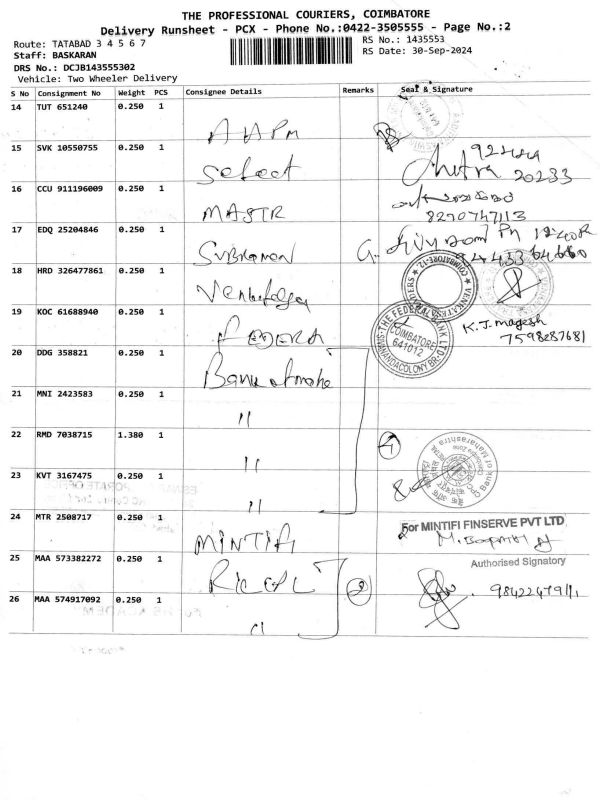 THE PROFESSIONAL COURIERS, COIMBATORE
Delivery Runsheet - PCX - Phone No.:0422-3505555 - Page No.:2
Route: TATABAD 3 4 5 6 7
RS No.: 1435553
Staff: BASKARAN
RS Date: 30-Sep-2024
DRS No.: DCJB143555302
Vehicle: Two Wheeler Delivery
S No Consignment No Weight PCS Consignee Details Remarks Seal & Signature
14 TUT 651240 0.250 1
15 SVK 10550755 0.250 1 Select
Chitra 20233
16 CCU 911196009 0.250 1 MASTR
8270747113
17 EDQ 25204846 0.250 1
18 HRD 326477861 0.250 1
COIMBATORE-12
19 KOC 61688940 0.250 1 FEDERA
K.J. magesh
7598287681
THE FEDERAL BANK LTD
COIMBATORE
641012
20 DDG 358821 0.250 1 Bank of maha
21 MNI 2423583 0.250 1 "
22 RMD 7038715 1.380 1 " 4
Bank of Maharashtra
23 KVT 3167475 0.250 1 "
24 MTR 2508717 0.250 1 MINTIFI
For MINTIFI FINSERVE PVT LTD
Authorised Signatory
25 MAA 573382272 0.250 1
2
26 MAA 574917092 0.250 1 "